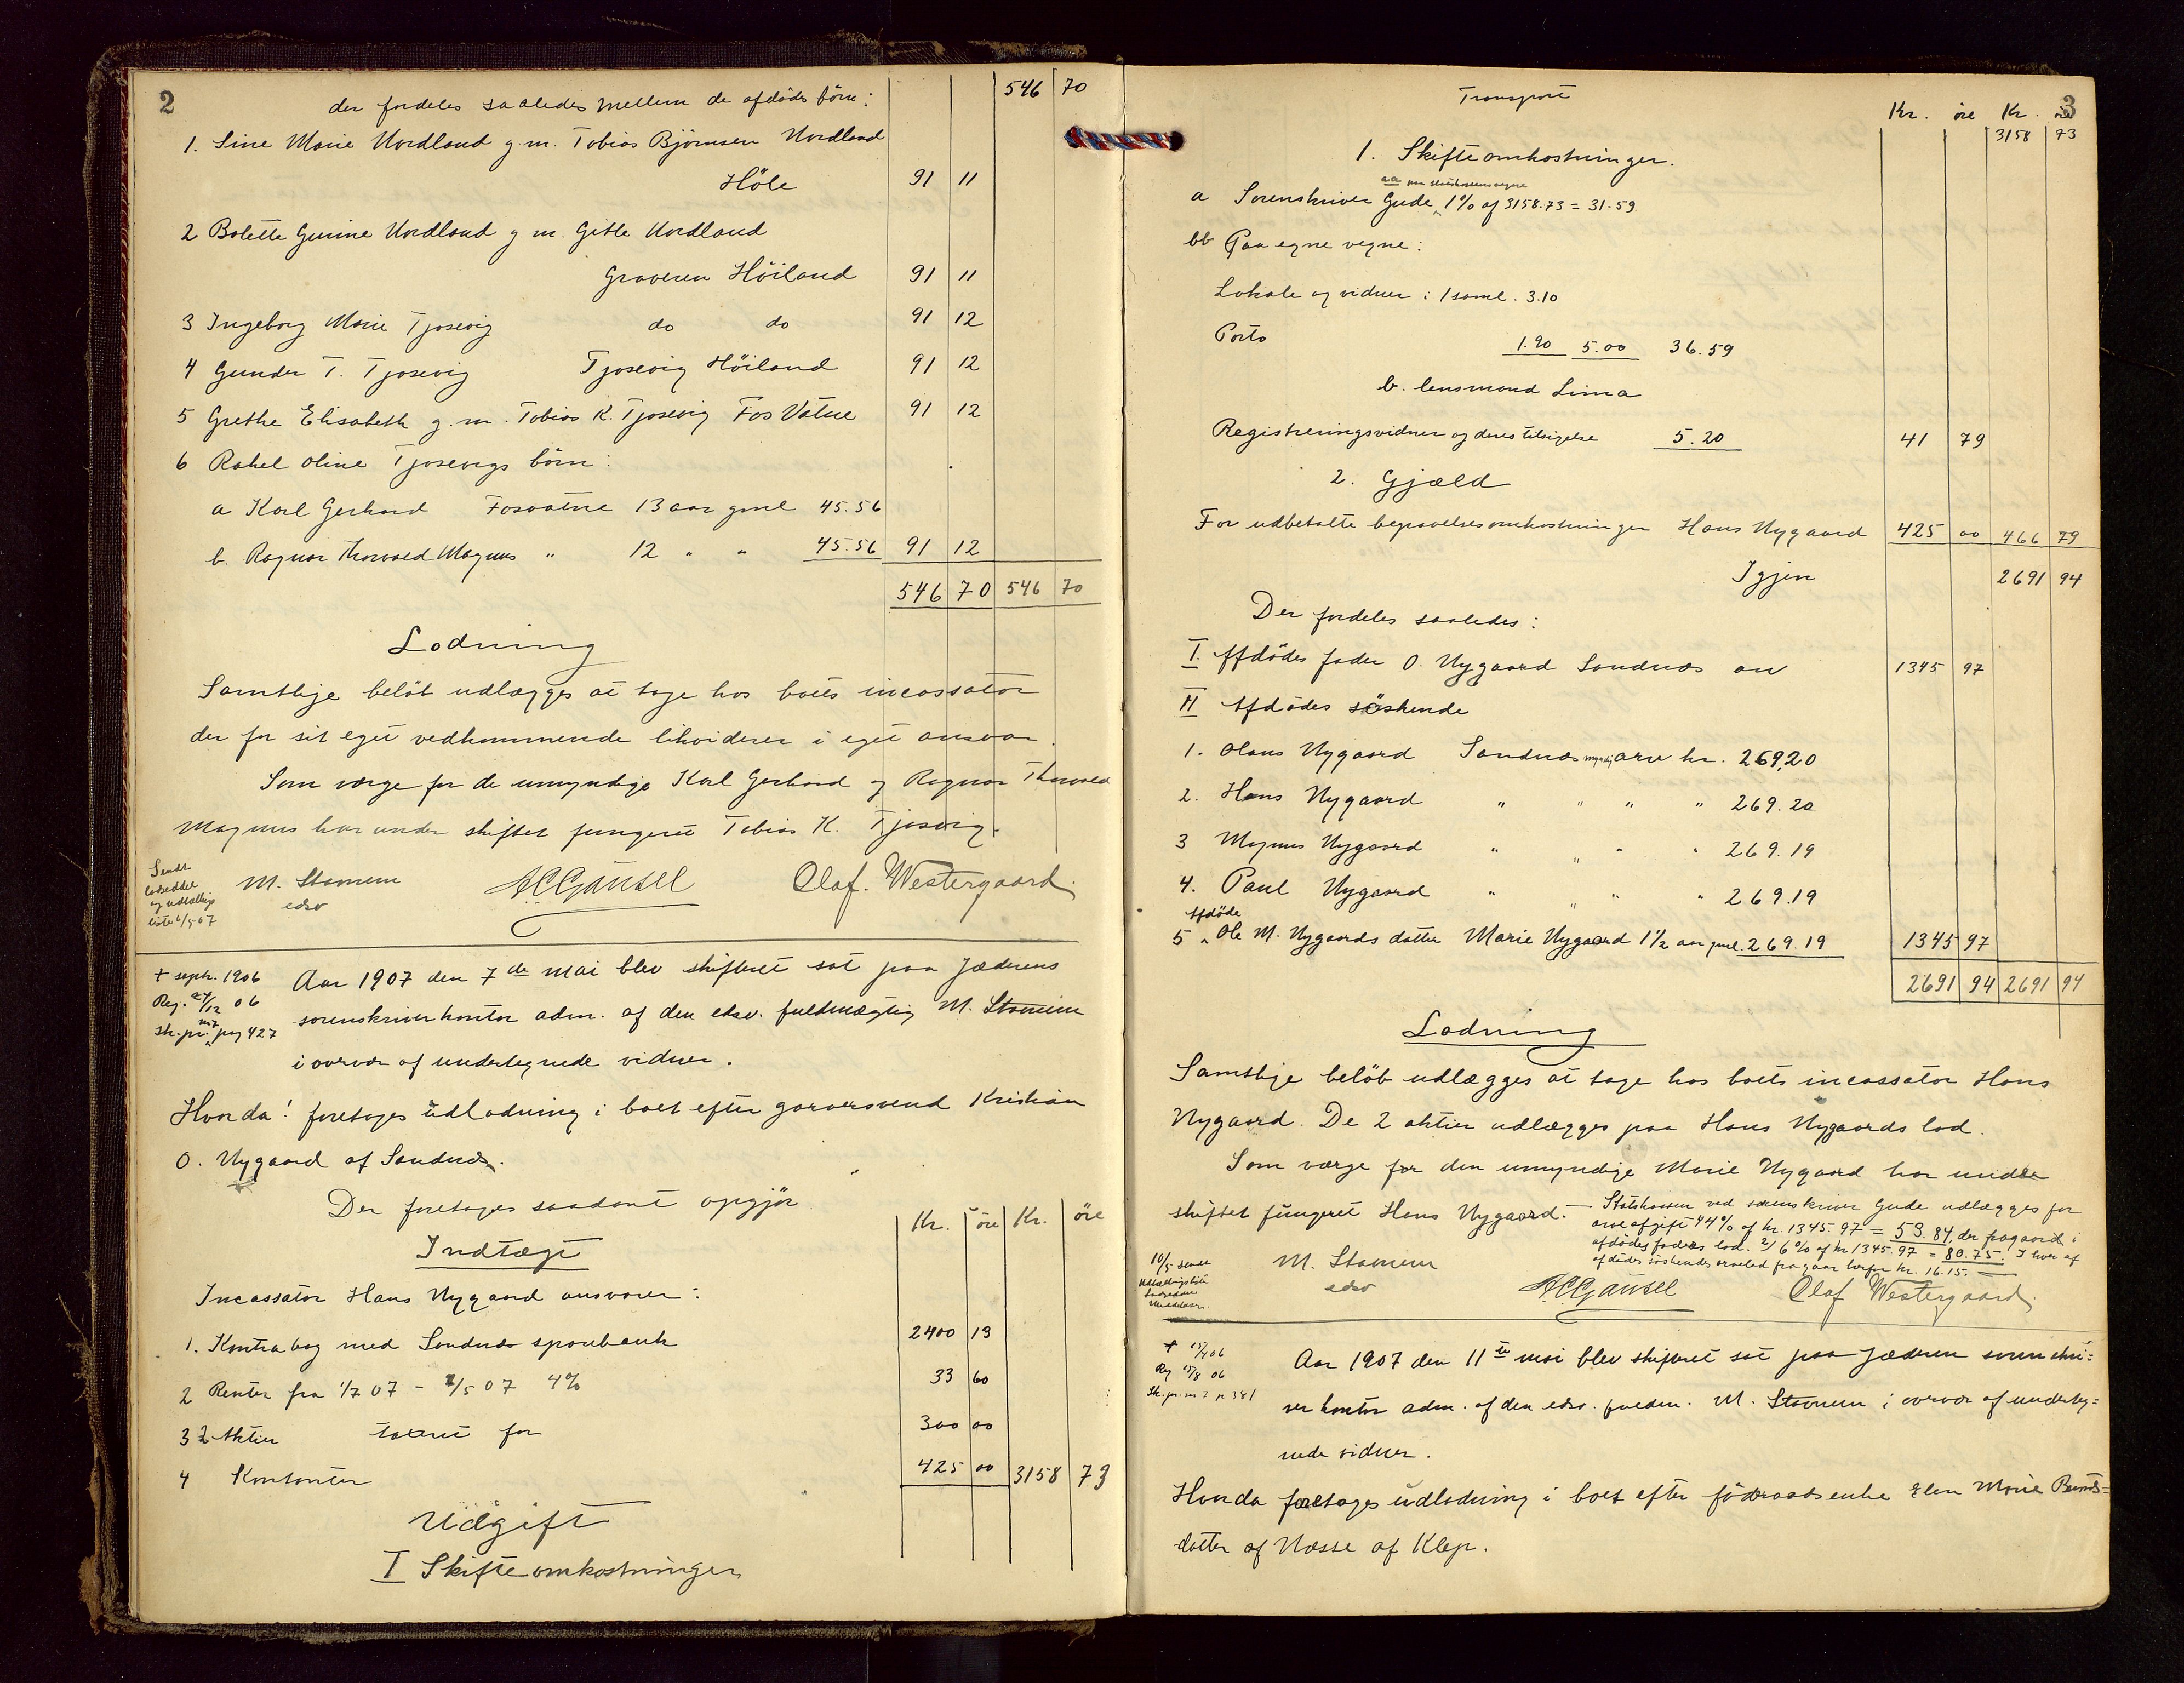 2
der fordeles saaledes mellem de afdödes börn: 546 70
1. Sine Marie Nordland g. m. Tobias Björnsen Nordland
Höle 91 11
2 Bolette Gurine Nordland g m. Gitle Nordland
Graveren Höiland 91 11
3 Ingeborg Marie Tjosevig do do 91 12
4 Gunder T. Tjosevig Tjosevig Höiland 91 12
5 Grethe Elisabeth g. m. Tobias K. Tjosevig Fos Vatne 91 12
6 Rakel Oline Tjosevigs börn:
a Karl Gerhard Fosvatne 13 aar gml 45.56
b. Ragnar Thorvald Magnus " 12 " " 45.56 91 12
546 70 546 70
Lodning
Samtlige beløb udlægges at tage hos boets incassator
der for sit eget vedkommende likviderer i eget ansvar.
Som værge for de umyndige Karl Gerhard og Ragnar Thorvald
Magnus har under skiftet fungeret Tobias K. Tjosevig.
Sendt
lodseddel
og udlodnings
liste 6/5 07
M. Stornem
edsv
A C Gausel
Olaf. Westergaard.
+ septr. 1906
Reg. 27/12 06
Sk. pr. nr 7 pag 427
Aar 1907 den 7de mai blev skifteret sat paa Jæderens
sorenskriverkontor adm. af den edsv. fuldmægtig M. Stornem
i overvær af undertegnede vidner.
Hvorda! foretages udlodning i boet efter garversvend Kristian
O. Nygaard af Sandnæs.
Der foretages saadant opgjör
Kr. öre Kr. öre
Indtægt
Incassator Hans Nygaard ansvarer:
1. Kontrabog med Sandnæs sparebank 2400 13
2 Renter fra 1/7 07 - 7/5 07 4% 33 60
3 2 Aktier taxeret for 300 00
4 Kontanter 425 00 3158 73
Udgift
I Skifteomkostninger
3
Transport
Kr. öre Kr. öre
3158 73
1. Skifteomkostninger.
aa paa statskassens vegne
a Sorenskriver Gude 1% af 3158.73 = 31.59
bb Paa egne vegne:
Lokale og vidner i 1 saml. 3.10
Porto 1.90 5.00 36.59
b. lensmand Lima
Registreringsvidner og deres tilsigelse 5.20 41 79
2. Gjæld
For udbetalte begravelsesomkostninger Hans Nygaard 425 00 466 79
Igjen 2691 94
Der fordeles saaledes:
I. Afdödes fader O. Nygaard Sandnæs arv 1345 97
II Afdödes söskende
1. Olaus Nygaard Sandnæs myndig arv kr. 269,20
2. Hans Nygaard " " " " 269.20
3 Magnus Nygaard " " " " 269.19
4. Paul Nygaard " " " " 269.19
Afdöde
5 Ole M. Nygaards datter Marie Nygaard 1½ aar gml. 269.19 1345 97
2691 94 2691 94
Lodning
Samtlige beløb udlægges at tage hos boets incassator Hans
Nygaard. De 2 aktier udlægges paa Hans Nygaards lod.
Som værge for den umyndige Marie Nygaard har under
skiftet fungeret Hans Nygaard. — Statskassen ved sorenskriver Gude udlægges for
arveafgift 4 4% af kr. 1345.97 = 53.84, der fragaar i
afdödes faders lod. 2/ 6% af kr 1345.97 = 80.75. I hver af
afdödes söskendes arvelod fragaar herfor kr. 16.15. —
10/5 sendt
udlodningsliste
Lodseddel
M. Stornem
edsv
A C Gausel
Olaf Westergaard.
+ 15/4 06
Reg 15/8 06
Sk. pr. nr 7 p 381
Aar 1907 den 11te mai blev skifteret sat paa Jæderen sorenskri=
verkontor adm. af den edsv. fuldm. M. Stornem i overvær af underteg=
nede vidner.
Hvorda foretages udlodning i boet efter födraadsenke Elen Marie Bernts=
datter af Næsse af Klep.